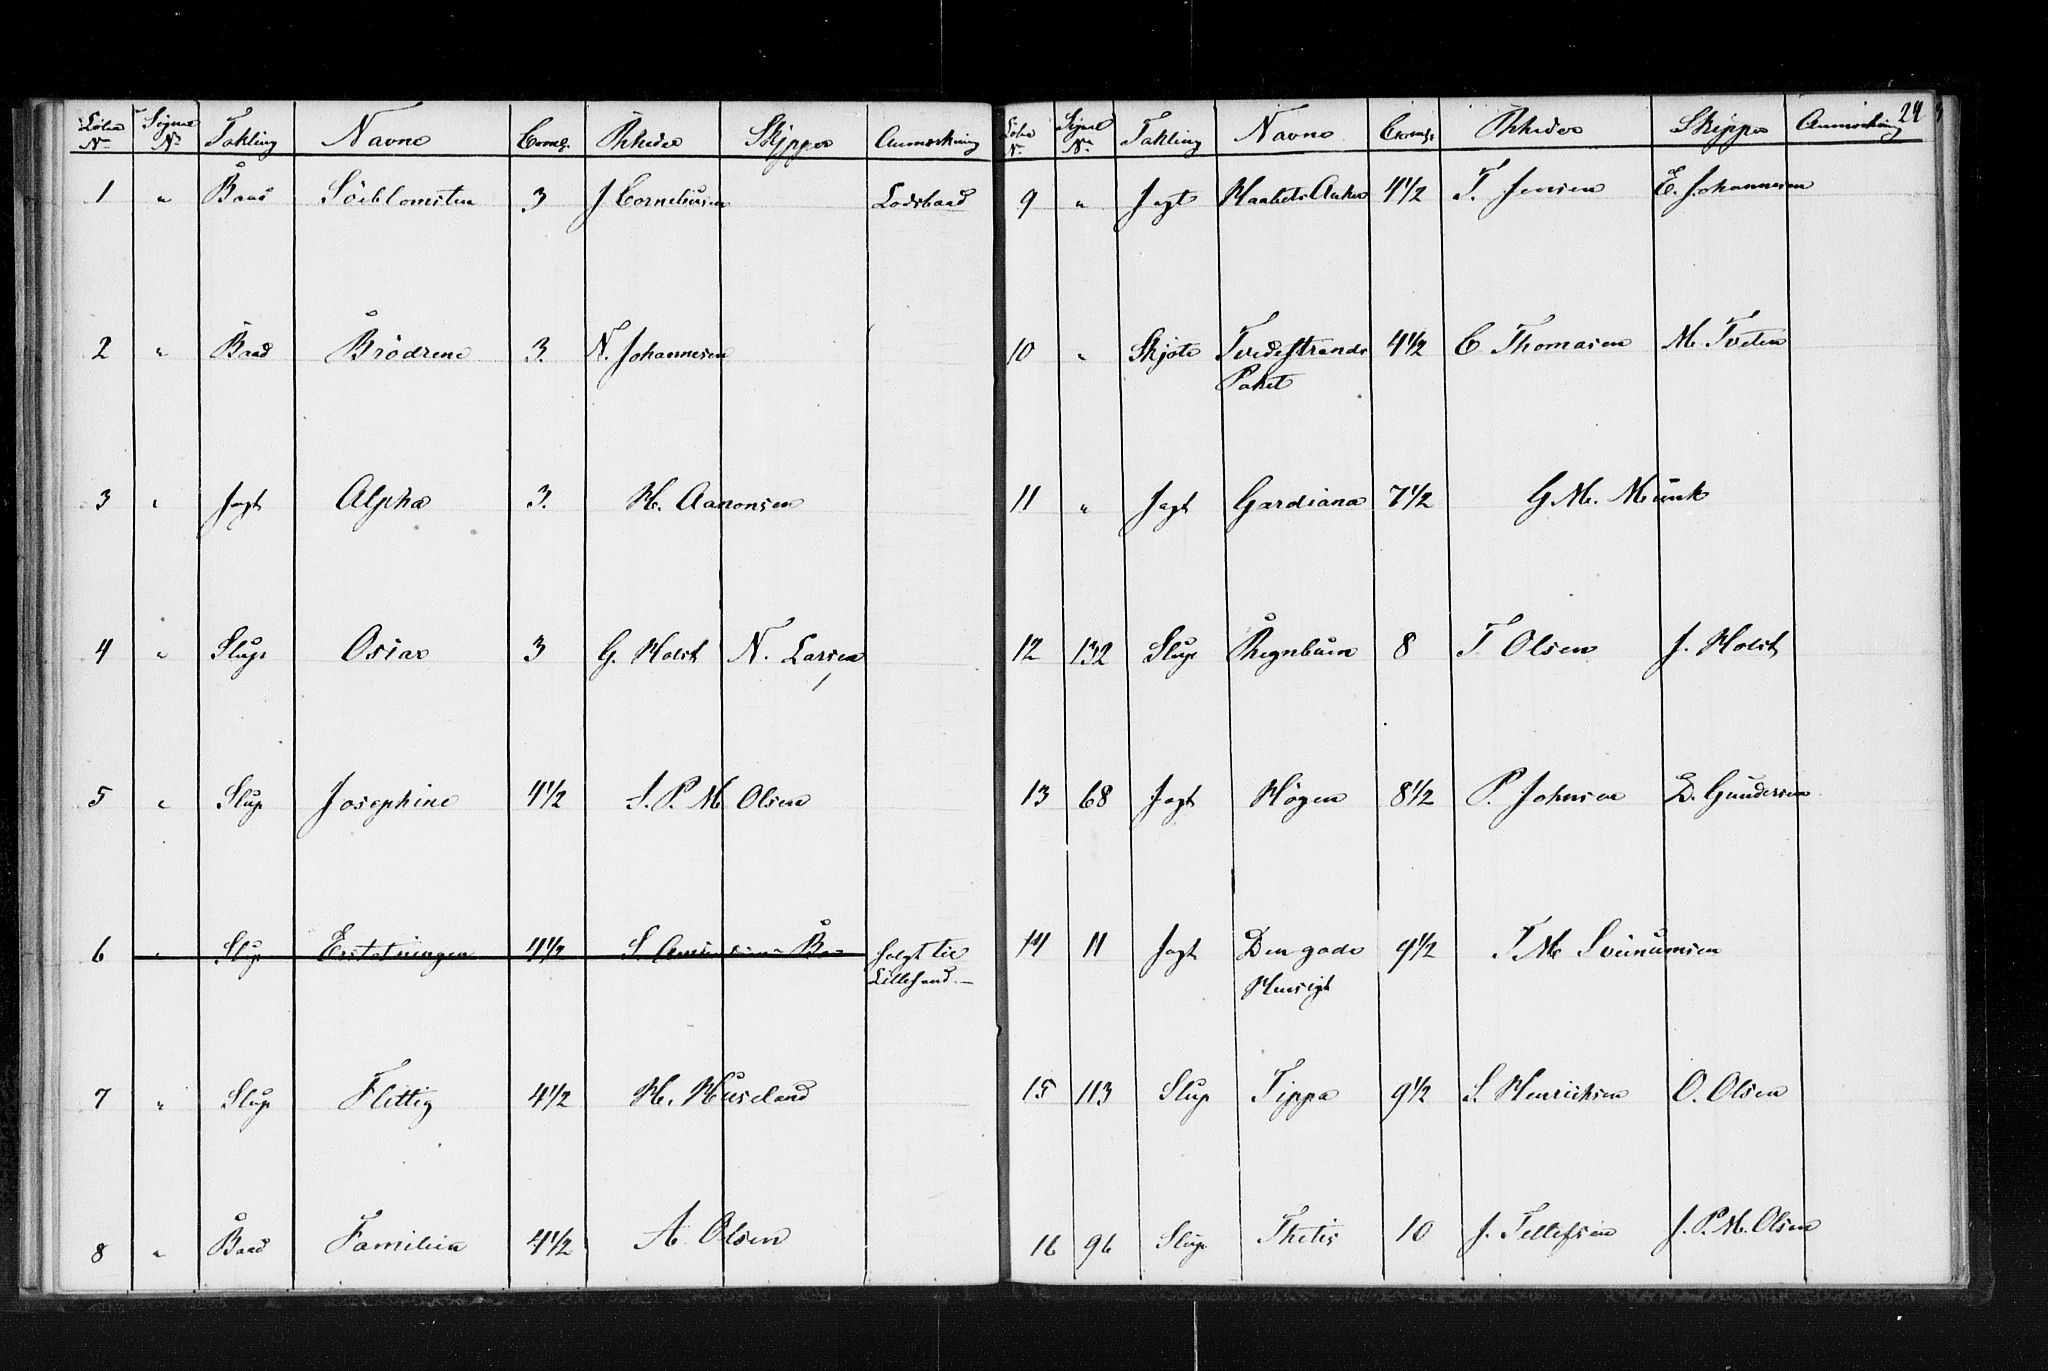 Löbe Signal Takling Navne Coms. Rheder Skipper Anmærkning
No No
1 " Baad Söeblomsten 3 J Corneliusen Lodsbaad
2 " Baad Brödrene 3 N. Johannesen
3 " Jagt Alpha 3. H. Aanonsen
4 " Slup Osiar 3 G. Holst N. Larsen
5 " Slup Josephine 4½ J. P. M Olsen
6 " Slup Erstatningen 4½ S. solgt til
Lillesand.
7 " Slup Flittig 4½ H. Huseland
8 " Baad Familien 4½ A. Olsen
24
Löbe Signal Takling Navne Coms. Rheder Skipper Anmærkning
N. No
9 " Jagt Haabets Anker 4½ T. Jensen E. Johannesen
10 " Skjöte Tvedestrands 4½ C Thomasen M. Tveten
Paket
11 " Jagt Gardiana 7½ G. M. Munk
12 132 Slup Regnbuen 8 T Olsen J. Holst
13 68 Jagt Högen 8½ P. Johnsen D. Gundersen
14 11 Jagt Den gode 9½ T M Svenumsen
Hensigt
15 113 Slup Tippa 9½ S. Henriksen O. Olsen
16 96 Slup Thetis 10 J. Tellefsen J. P. M. Olsen